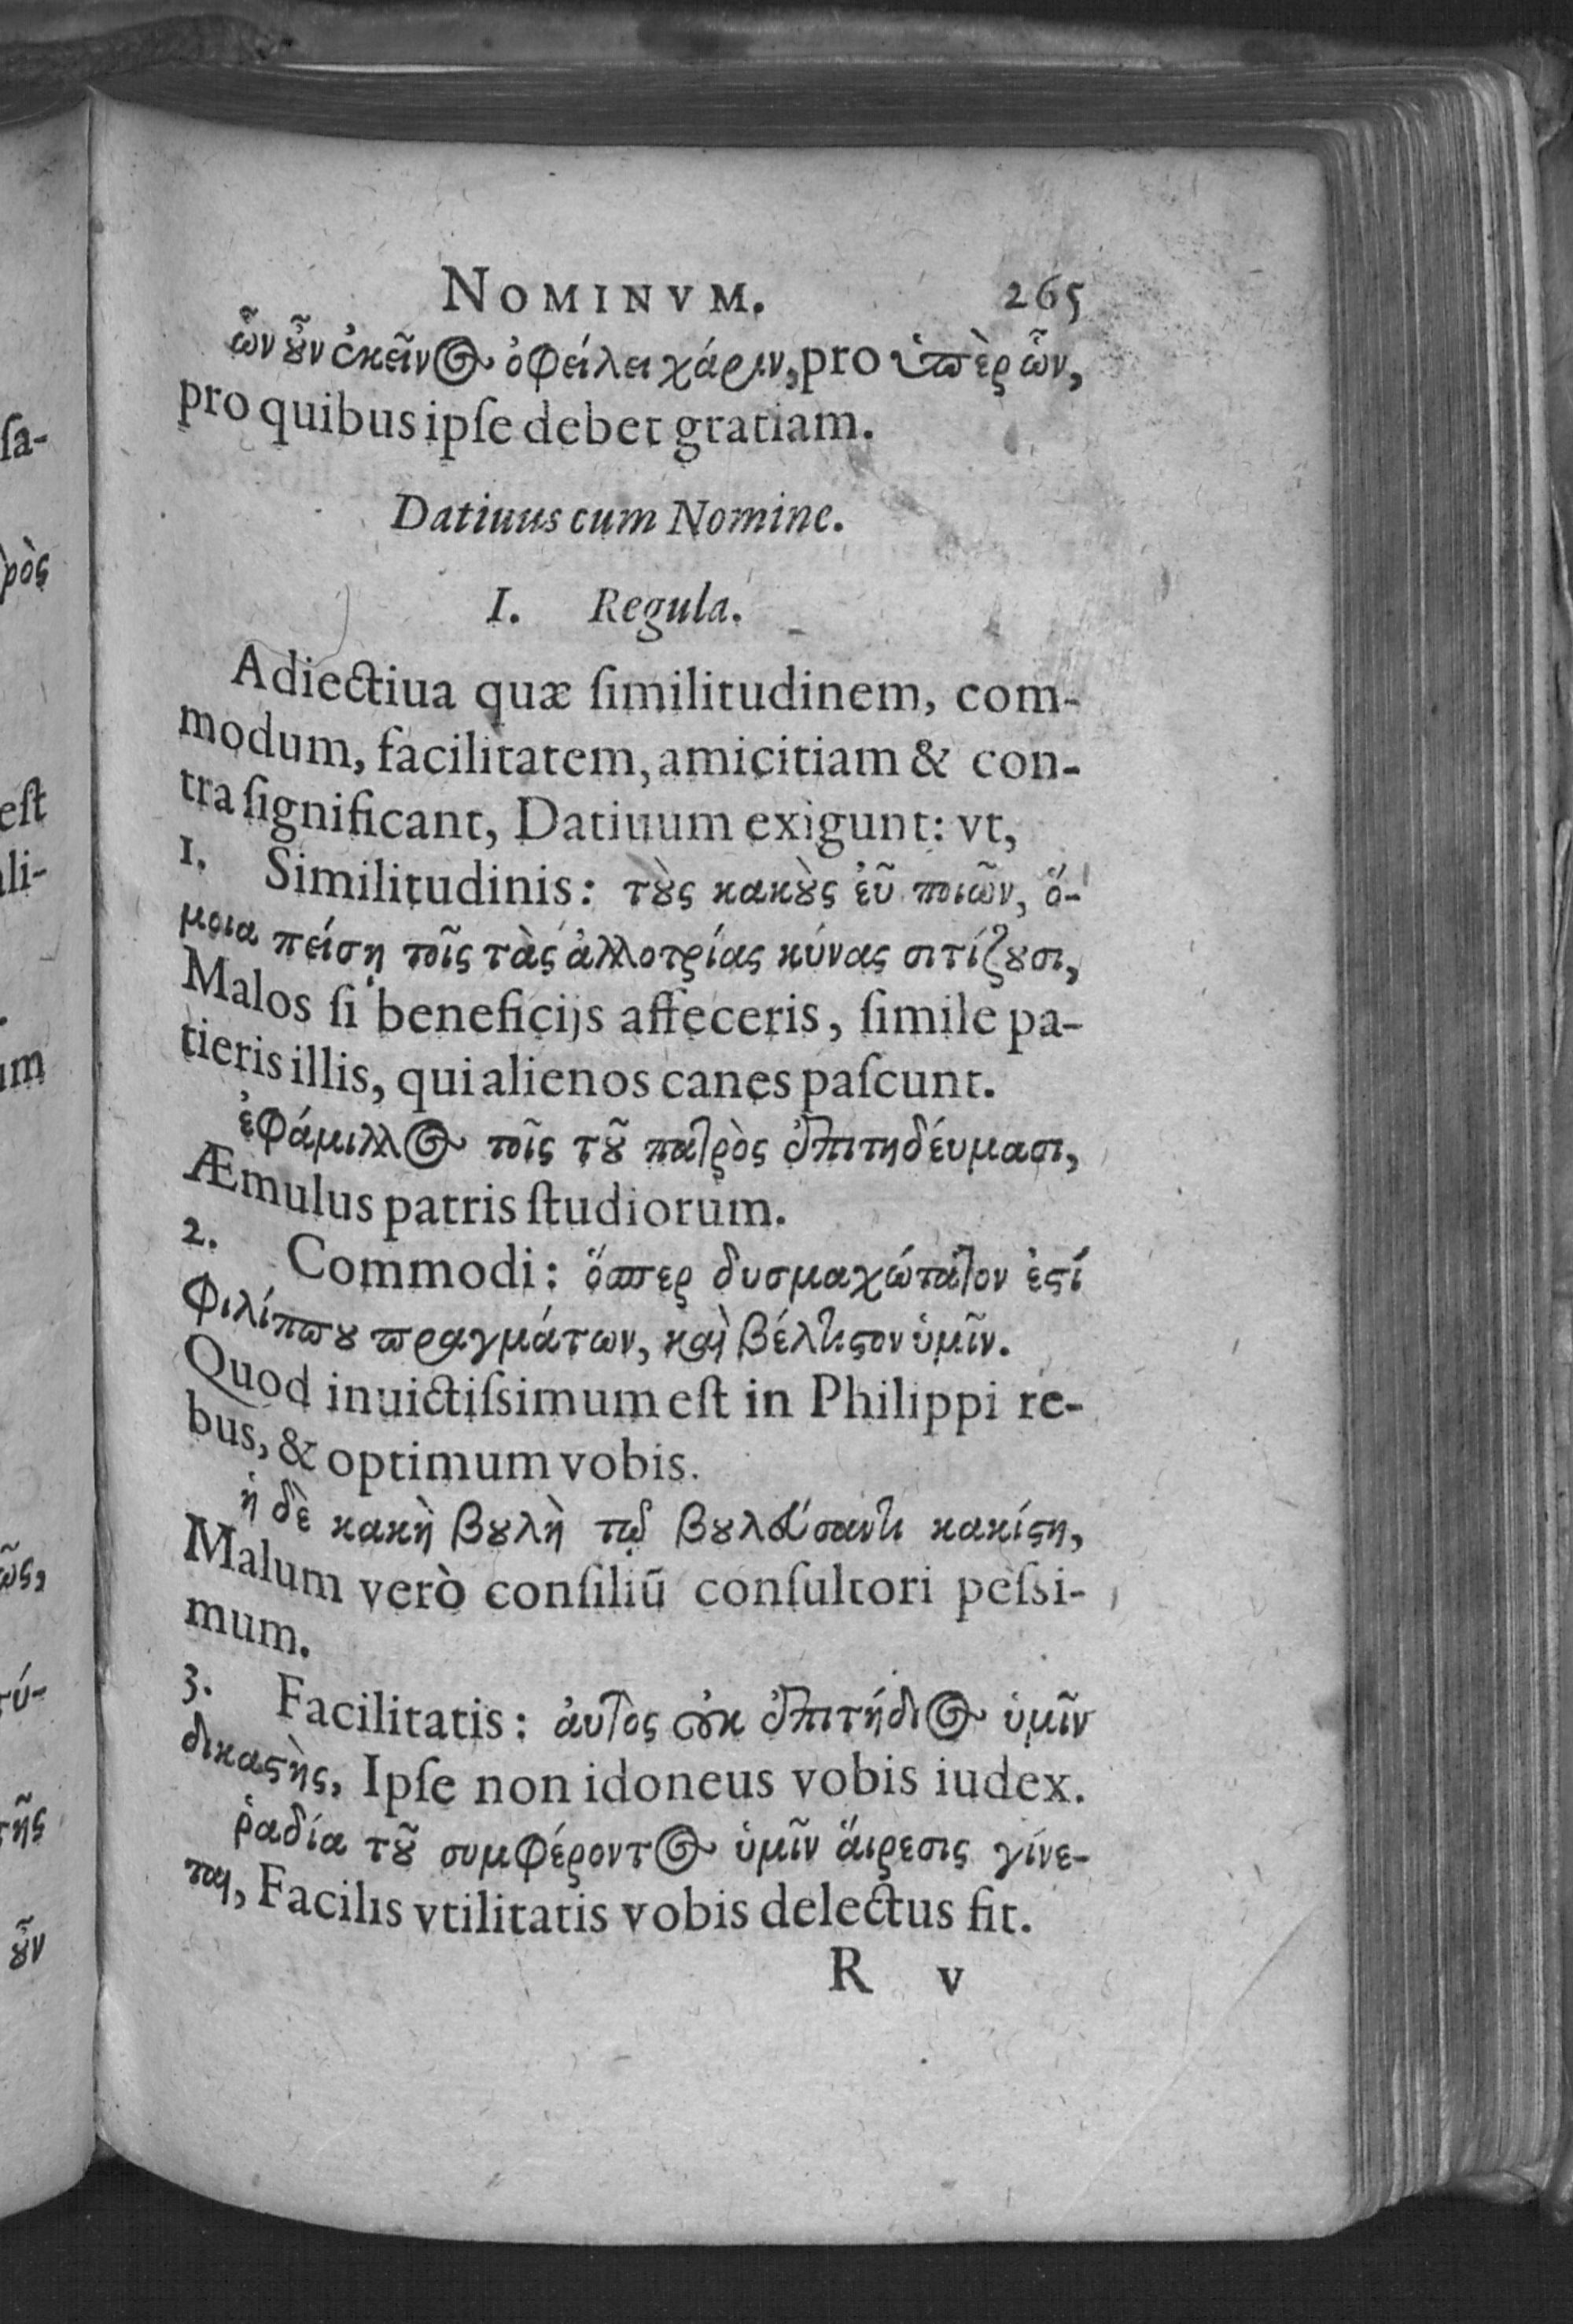 NOMINVM. 265
ὧν ȣ̓͂ν ἐκεῖνος ὀφείλει χάριν, pro ὑπὲρ ὧν,
pro quibus ipſe debet gratiam.
Datiuus cum Nomine.
I. Regula.
Adiectiua quæ ſimilitudinem, com-
modum, facilitatem, amicitiam & con-
tra ſignificant, Datiuum exigunt: vt,
1. Similitudinis: τȣ̀ς κακȣ̀ς ἐῦ ποιῶν, ὅ-
μοια πείσῃ τοῖς τὰς ἀλλοτρίας κύνας σιτίζȣσι,
Malos ſi beneficijs affeceris, ſimile pa-
tieris illis, qui alienos canes paſcunt.
ἐφάμιλλος τοῖς τȣ͂ πατρὸς ἐπιτηδέυμασι,
Æmulus patris ſtudiorum.
2. Commodi: ὅπερ δυσμαχώτατον ἐϛί
Φιλίππȣ πραγμάτων, καὶ βέλτιϛον ὑμῖν.
Quod inuictiſsimum eſt in Philippi re-
bus, & optimum vobis.
ἡ δὲ κακὴ βȣλὴ τῷ βȣλεύσαντι κακίϛη,
Malum verò conſiliũ conſultori peſsi-
mum.
3. Facilitatis: ἀυτὸς ȣ̓κ ἐπιτήδιος ὑμῖν
δικαϛὴς, Ipſe non idoneus vobis iudex.
ῥαδία τȣ͂ συμφέροντος ὑμῖν ἅιρεσις γίνε-
ται, Facilis vtilitatis vobis delectus fit.
R v
ſa-
ρὸς
eſt
ali-
um
ῶς,
τύ-
τῆς
ȣ̓͂ν